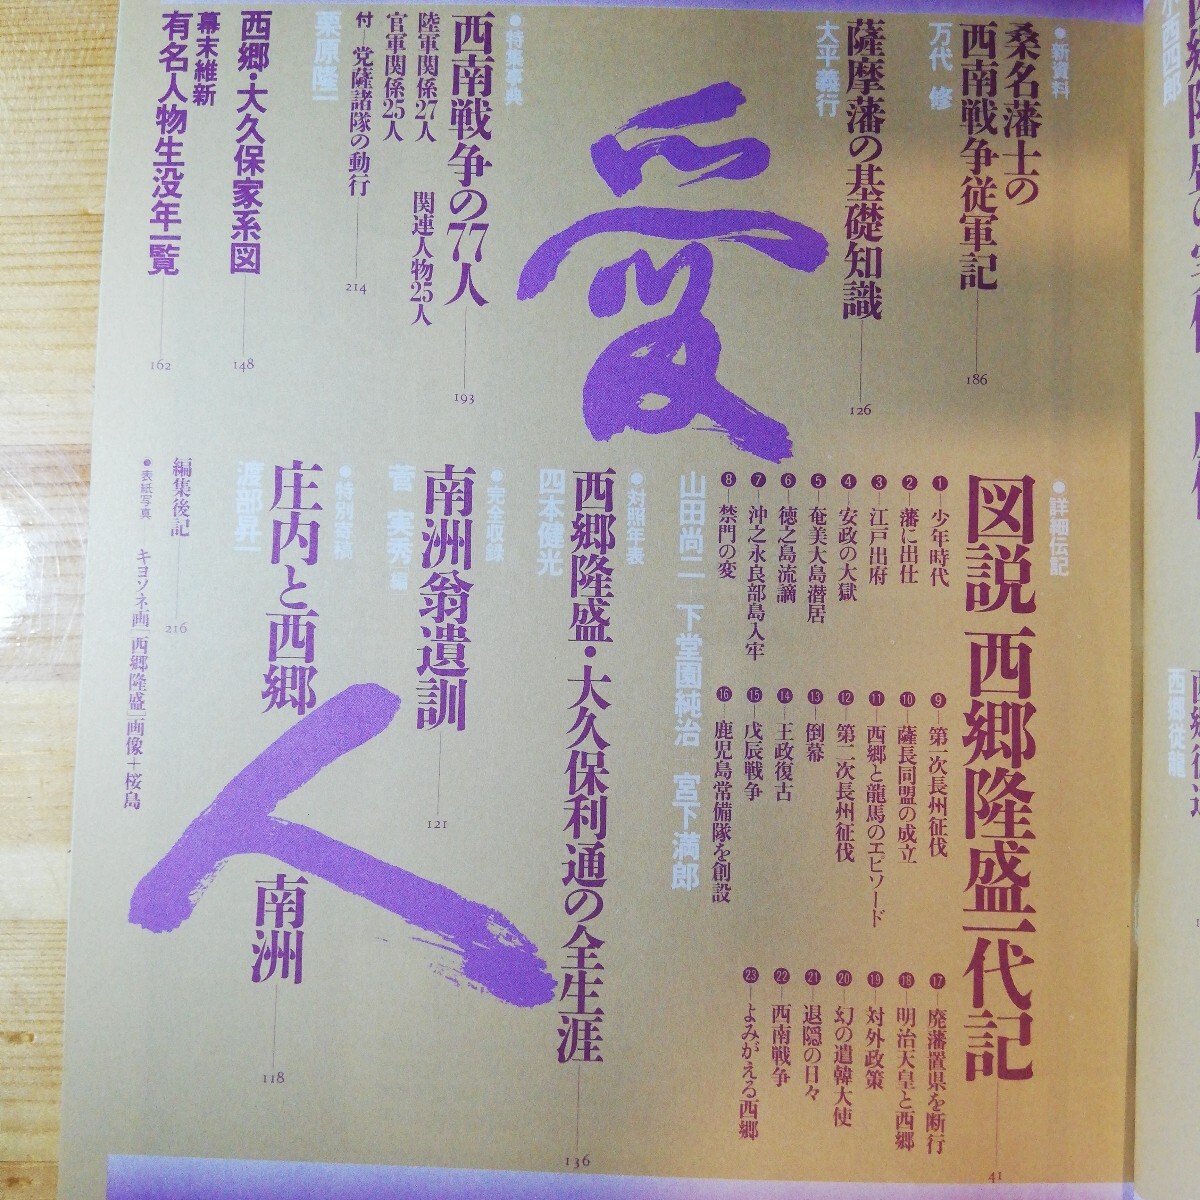 ●新資料
桑名藩士の
西南戦争従軍記
186
万代 修
薩摩藩の基礎知識
126
大平義行
愛
●特集事典
西南戦争の77人
193
陸軍関係27人 関連人物25人
官軍関係25人
付―党薩諸隊の動行
214
栗原隆一
西郷・大久保家系図
148
幕末維新
有名人物生没年一覧
162
●詳細伝記
図説 西郷隆盛一代記
41
❶―少年時代
❷―藩に出仕
❸―江戸出府
❹―安政の大獄
❺―奄美大島潜居
❻―徳之島流謫
❼―沖之永良部島入牢
❽―禁門の変
❾―第一次長州征伐
❿―薩長同盟の成立
⓫―西郷と龍馬のエピソード
⓬―第二次長州征伐
⓭―倒幕
⓮―王政復古
⓯―戊辰戦争
⓰―鹿児島常備隊を創設
⓱―廃藩置県を断行
⓲―明治天皇と西郷
⓳―対外政策
⓴―幻の遣韓大使
㉑―退隠の日々
㉒―西南戦争
㉓―よみがえる西郷
山田尚二―下堂園純治 宮下満郎
●対照年表
西郷隆盛・大久保利通の全生涯
136
四本健光
●完全収録
南洲翁遺訓
121
菅 実秀編
●特別寄稿
庄内と西郷南洲
118
渡部昇一
人
編集後記
216
●表紙写真 キヨソネ画「西郷隆盛」画像＋桜島
小西四郎
西郷従道
西郷従龍